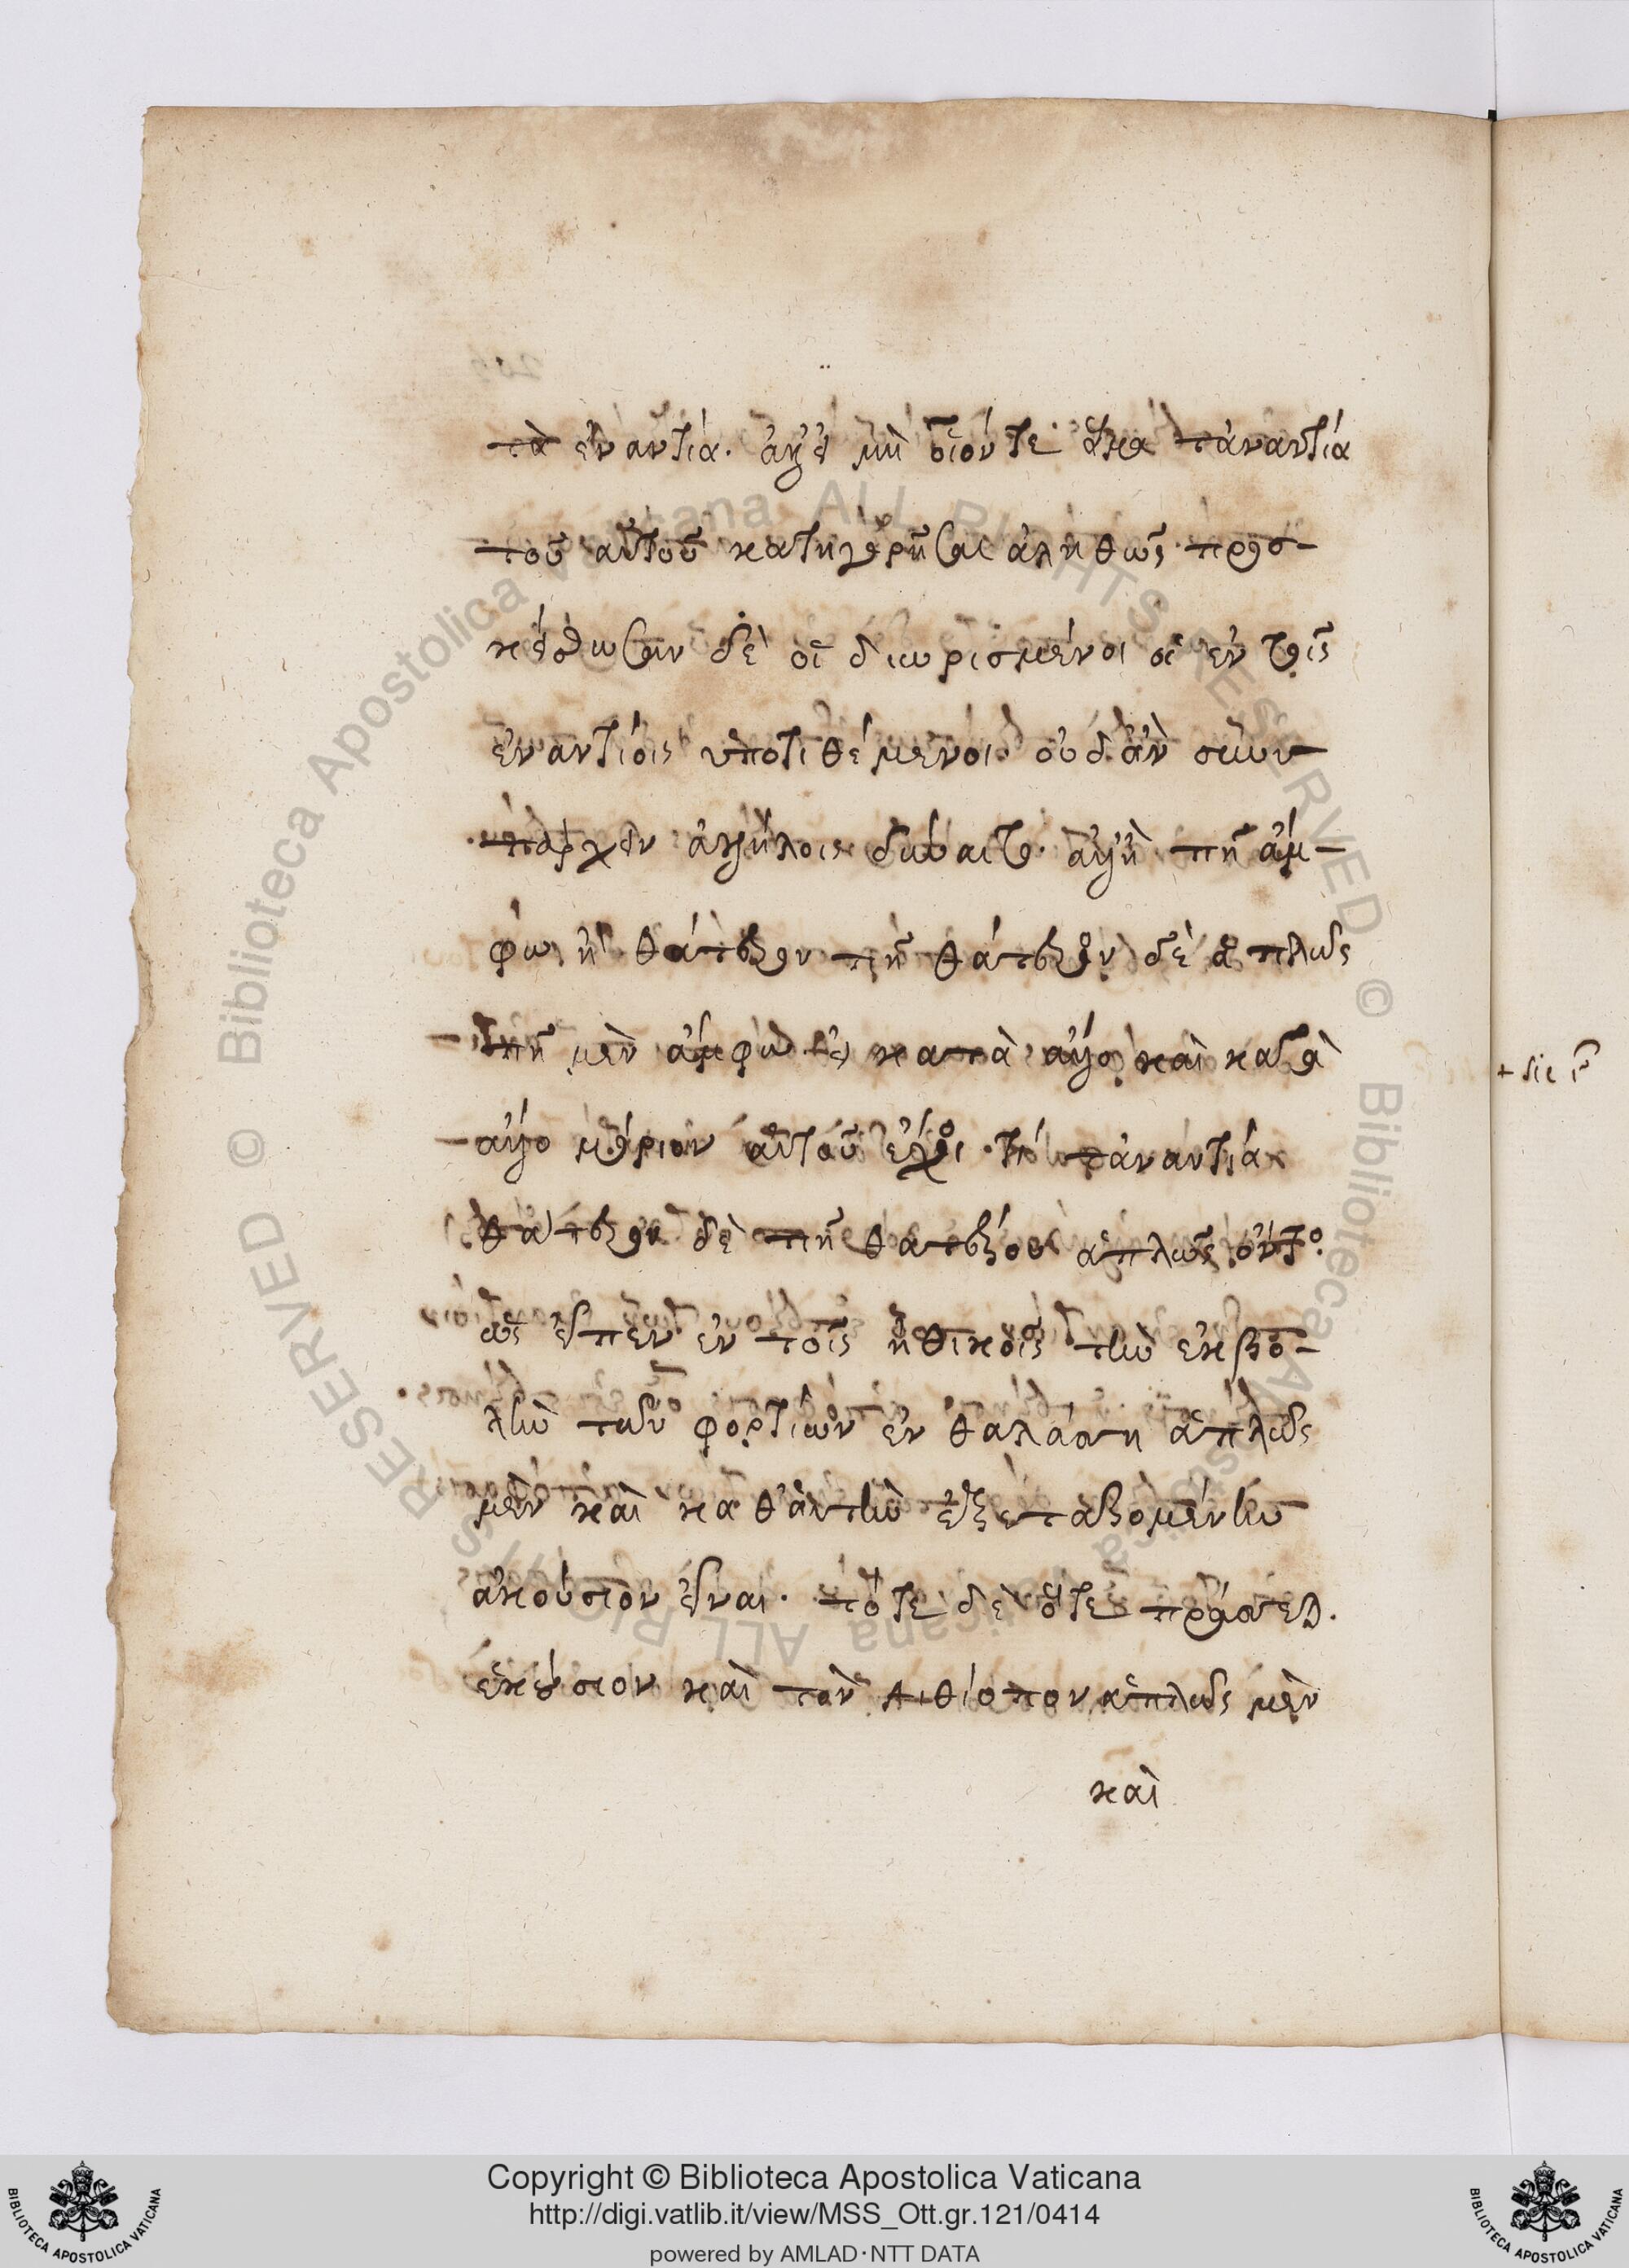 τὰ ἐναντία. ἀλλὰ μὴ οἷόν τε ἅμα τἀναντία
τοῦ αὐτοῦ κατηγορῆσαι ἀληθῶς προσ-
κείσθωσαν δὲ οἱ διωρισμένοι οἱ ἐν τοῖς
ἐναντίοις ὑποτιθέμενοι. οὐδ' ἂν συνυ-
πάρχειν ἀλλήλοις δύναιτο. ἀλλ' ἢ πῆ ἄμ-
φω ἢ θάτερον πῆ θάτερον δὲ ἁπλῶς
πῆ μὲν ἄμφω εἰ κατὰ ἄλλο καὶ κατὰ
ἄλλο μόριον αὐτοῦ ἔχοι τἀναντία
θάτερον δὲ πῆ θατέρου ἁπλῶς ὄντο.
ὡς εἶπεν ἐν τοῖς ἠθικοῖς τὴν ἐκβο-
λὴν τῶν φορτίων ἐν θαλάσση ἁπλῶς
μὲν καὶ καθ' αὑτὴν ἐξεταζομένην
ἀκούσιον εἶναι. τότε δὲ ὅτε
ἑκούσιον καὶ τὸν Αἰθίοπον ἁπλῶς μὲν
καὶ
+ sic
Copyright © Biblioteca Apostolica Vaticana
http://digi.vatlib.it/view/MSS_Ott.gr.121/0414
powered by AMLAD·NTT DATA
BIBLIOTECA APOSTOLICA VATICANA
BIBLIOTECA APOSTOLICA VATICANA